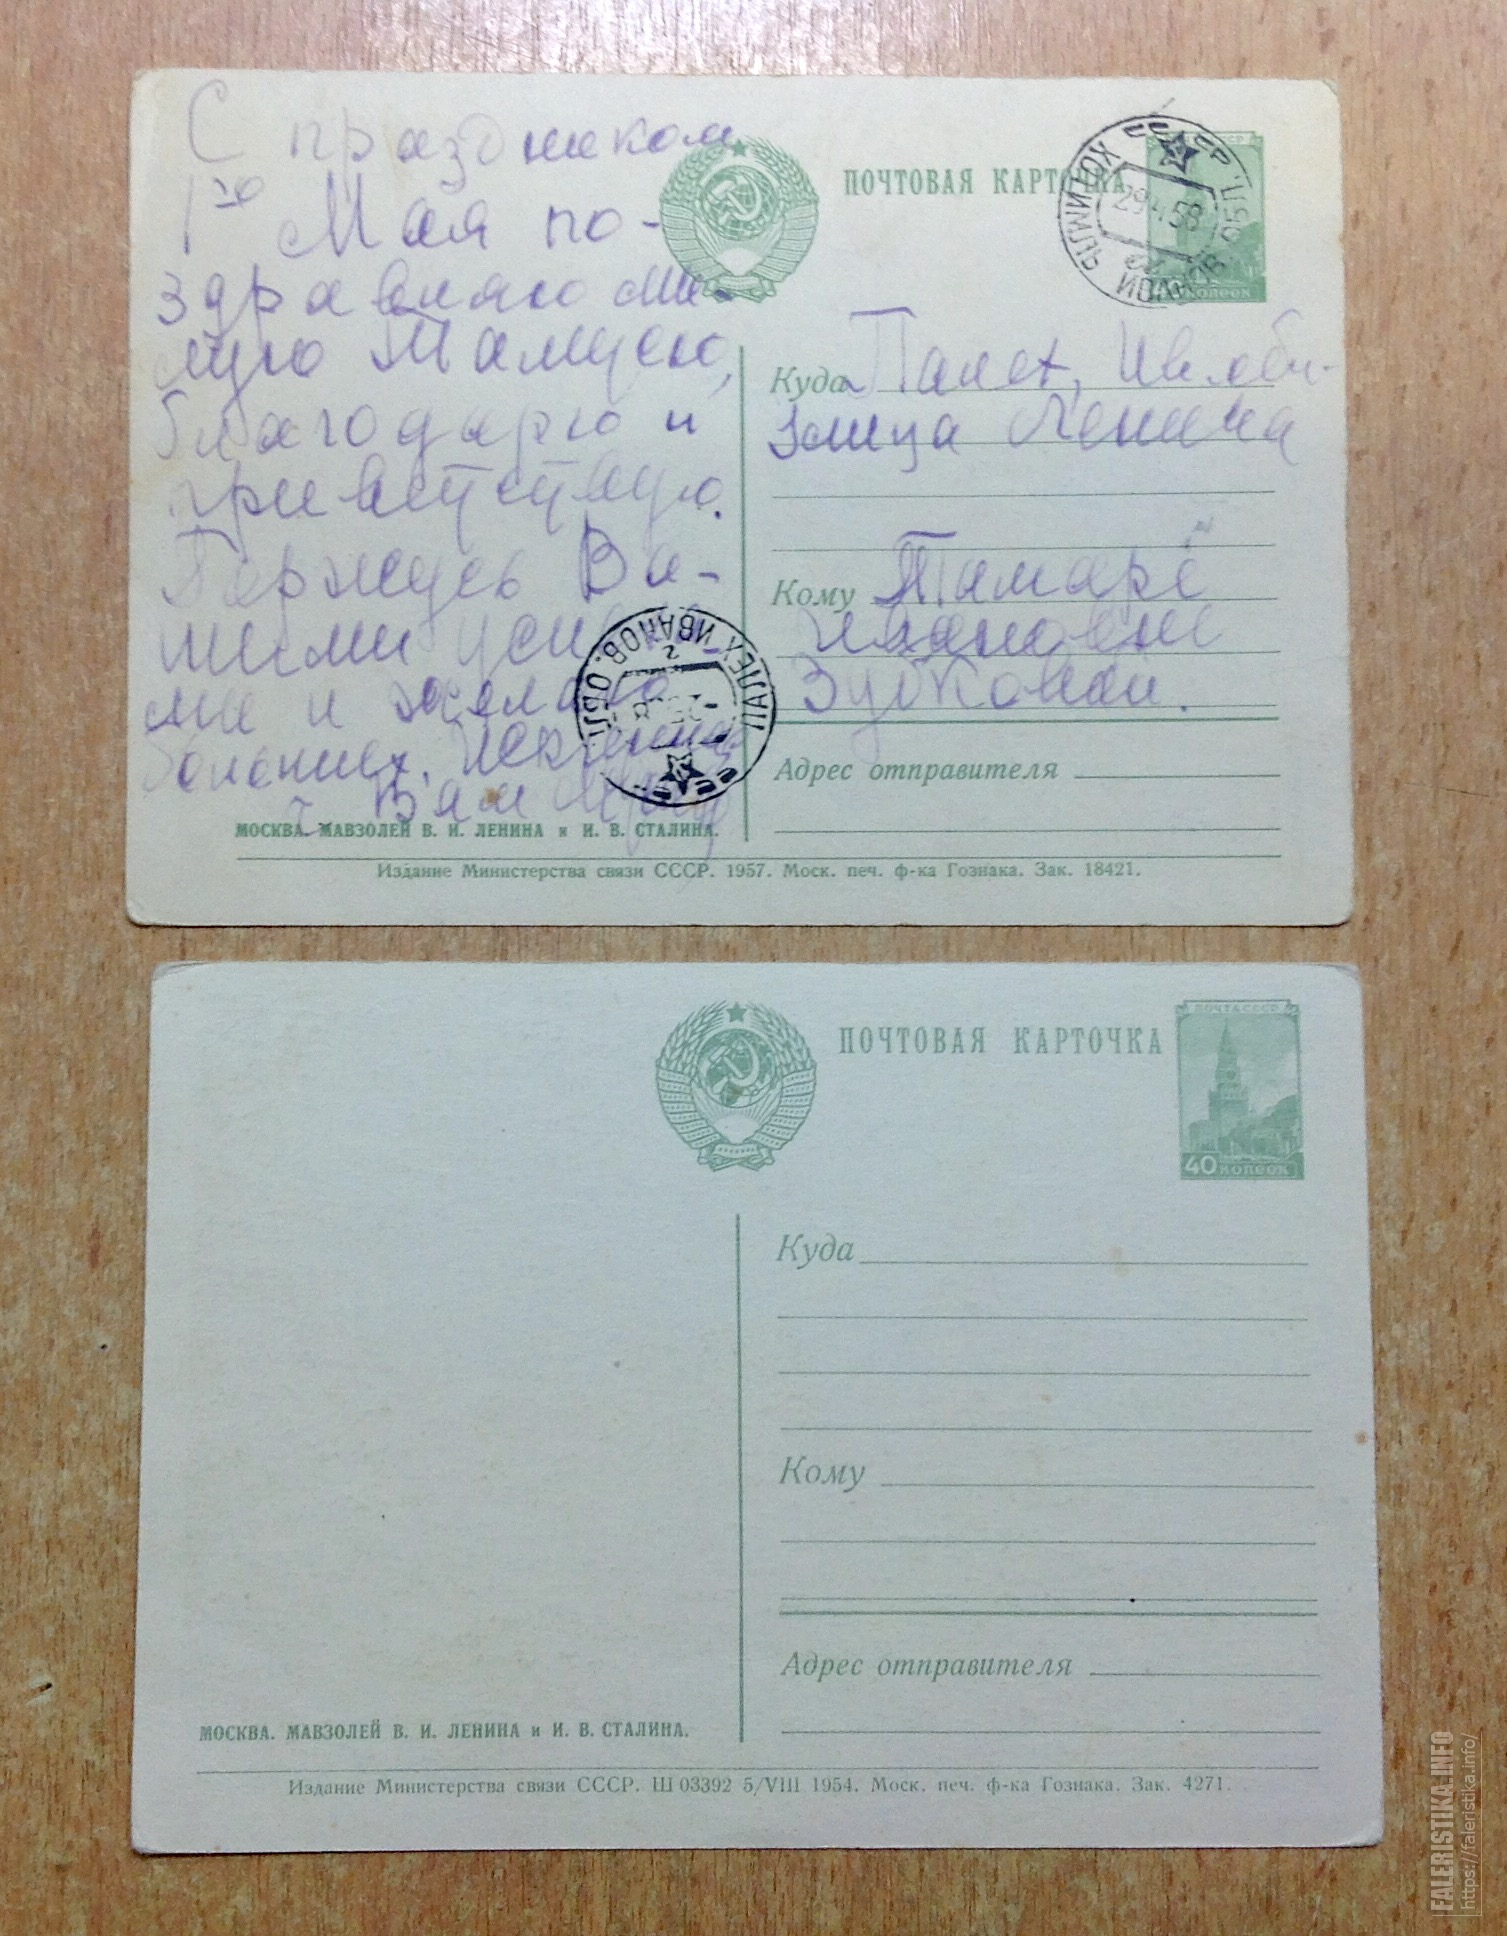 С праздником
1го Мая по-
здравляю ми-
лую Тамусю,
благодарю и
приветствую.
Горжусь Ва-
шими успеха-
ми и желаю
больших. Искренне
Вам
МОСКВА. МАВЗОЛЕЙ В. И. ЛЕНИНА и И. В. СТАЛИНА.
ПОЧТОВАЯ КАРТОЧКА
СССР
ХОТИМЛЬ ИВАНОВ. ОБЛ.
29 58
копеек
Куда Палех, Ив. обл.
улица Ленина
Кому Тамаре
Ивановне
Зубковой.
ПАЛЕХ ИВАНОВ. ОБЛ.
СССР
Адрес отправителя
Издание Министерства связи СССР. 1957. Моск. печ. ф-ка Гознака. Зак. 18421.
ПОЧТОВАЯ КАРТОЧКА
ПОЧТА СССР
40 копеек
Куда
Кому
Адрес отправителя
МОСКВА. МАВЗОЛЕЙ В. И. ЛЕНИНА и И. В. СТАЛИНА.
Издание Министерства связи СССР. Ш 03392 5/VIII 1954. Моск. печ. ф-ка Гознака. Зак. 4271.
FALERISTIKA.INFO
https://faleristika.info/